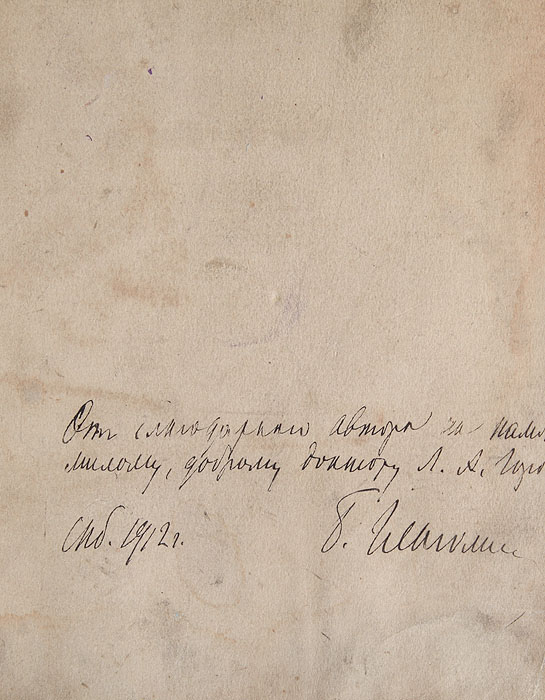 От благодарнаго автора на памя
милому, доброму доктору Л. А.
Спб. 1912 г.